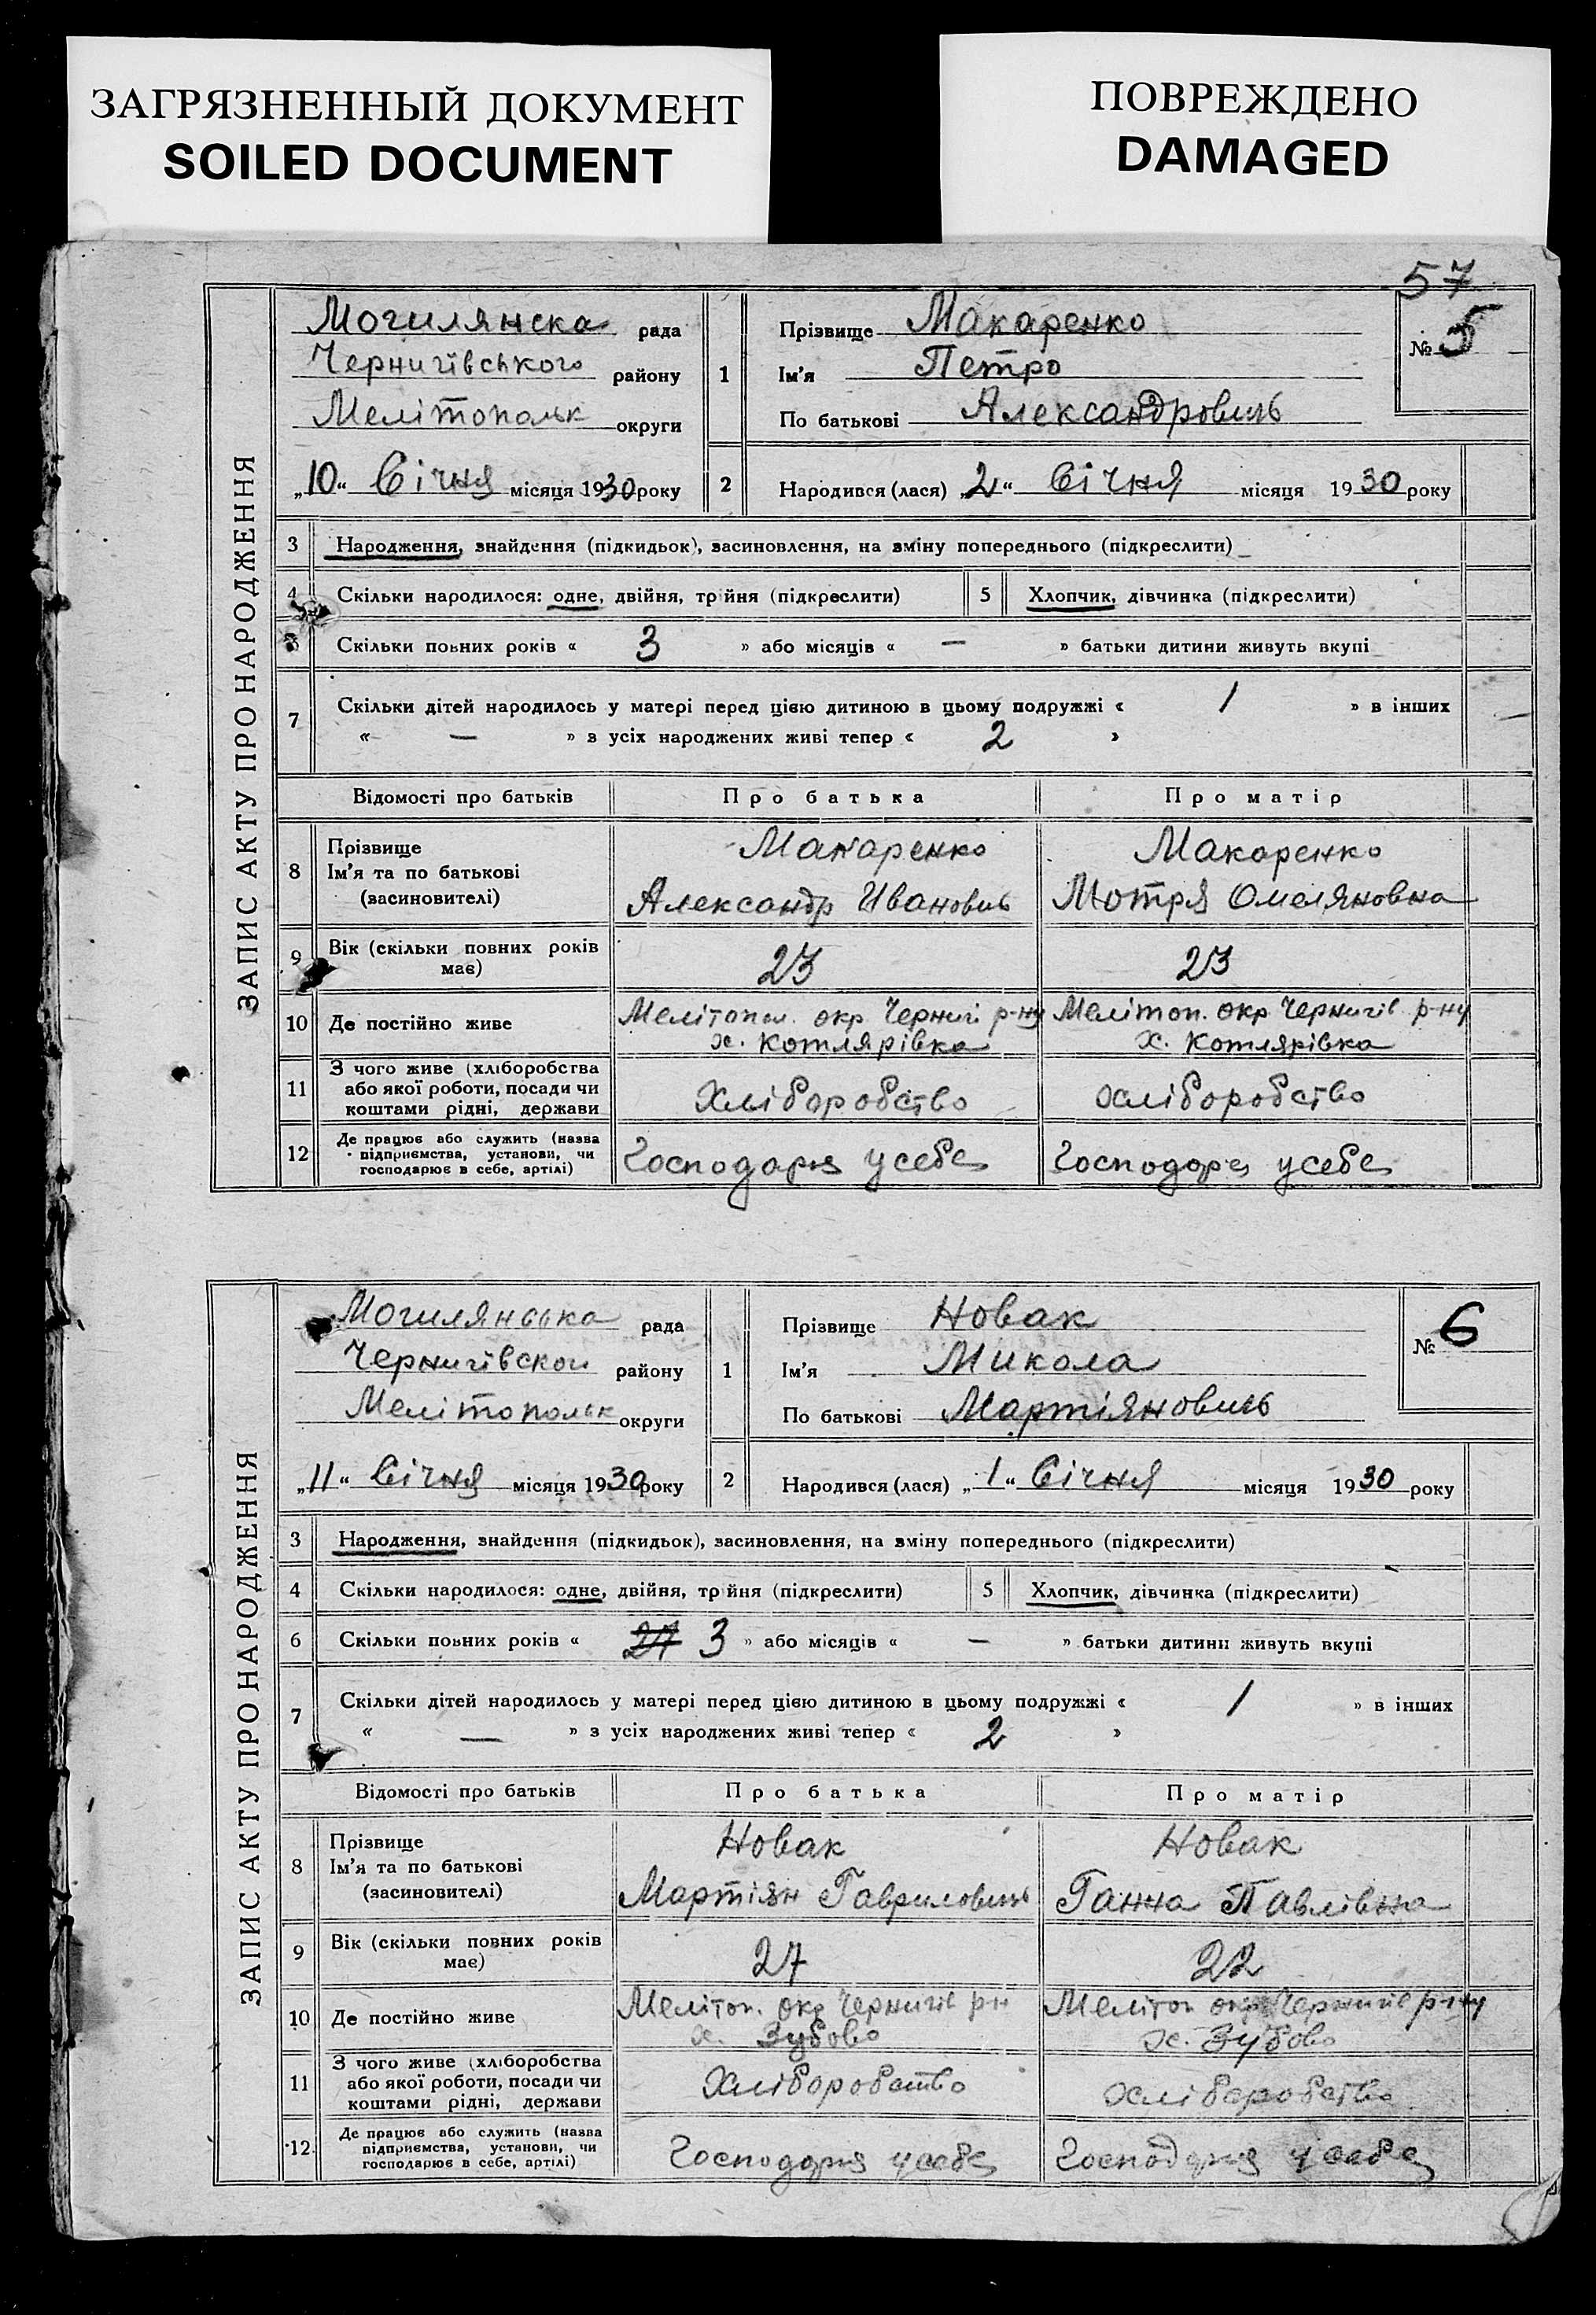 ЗАГРЯЗНЕННЫЙ ДОКУМЕНТ
SOILED DOCUMENT
ПОВРЕЖДЕНО
DAMAGED
57
ЗАПИС АКТУ ПРО НАРОДЖЕННЯ
Могилянска рада
Чернигівського району
Мелітопольк округи
„10“ Січня місяця 1930 року
1 Прізвище Макаренко
Ім'я Петро
По батькові Александровичь
№ 5
2 Народився (лася) „2“ Січня місяця 1930 року
3 Народження, знайдення (підкидьок), засиновлення, на зміну попереднього (підкреслити)
4 Скільки народилося: одне, двійня, трійня (підкреслити) 5 Хлопчик, дівчинка (підкреслити)
6 Скільки повних років « 3 » або місяців « — » батьки дитини живуть вкупі
7 Скільки дітей народилось у матері перед цією дитиною в цьому подружжі « 1 » в інших
« — » з усіх народжених живі тепер « 2 »
Відомості про батьків Про батька Про матір
8 Прізвище Макаренко Макаренко
Ім'я та по батькові
(засиновителі) Александр Ивановичь Мотря Омеляновна
9 Вік (скільки повних років
має) 23 23
10 Де постійно живе Мелітопол. окр Чернигі р-ну Мелітоп. окр Чернигів р-ну
х. Котлярівка х. Котлярівка
11 З чого живе (хліборобства
або якої роботи, посади чи
коштами рідні, держави Хліборобство хліборобство
12 Де працює або служить (назва
підприємства, установи, чи
господарює в себе, артілі) Господаря усебе Господоря усебе
ЗАПИС АКТУ ПРО НАРОДЖЕННЯ
Могилянська рада
Чернигівског району
Мелітопольк округи
„11“ Січня місяця 1930 року
1 Прізвище Новак
Ім'я Микола
По батькові Мартіяновичь
№ 6
2 Народився (лася) „1“ Січня місяця 1930 року
3 Народження, знайдення (підкидьок), засиновлення, на зміну попереднього (підкреслити)
4 Скільки народилося: одне, двійня, трійня (підкреслити) 5 Хлопчик, дівчинка (підкреслити)
6 Скільки повних років « 27 3 » або місяців « — » батьки дитини живуть вкупі
7 Скільки дітей народилось у матері перед цією дитиною в цьому подружжі « 1 » в інших
« — » з усіх народжених живі тепер « 2 »
Відомості про батьків Про батька Про матір
8 Прізвище Новак Новак
Ім'я та по батькові
(засиновителі) Мартіян Гавриловичь Ганна Павлівна
9 Вік (скільки повних років
має) 27 22
10 Де постійно живе Мелітоп. окр Чернигів рн Мелітоп окр Чернигів р-ну
х. Зубово х. Зубово
11 З чого живе (хліборобства
або якої роботи, посади чи
коштами рідні, держави Хліборобство хліборобство
12 Де працює або служить (назва
підприємства, установи, чи
господарює в себе, артілі) Господаря усебе Господаря усебе